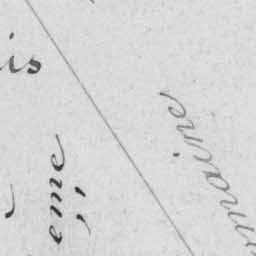 is
eme
maire